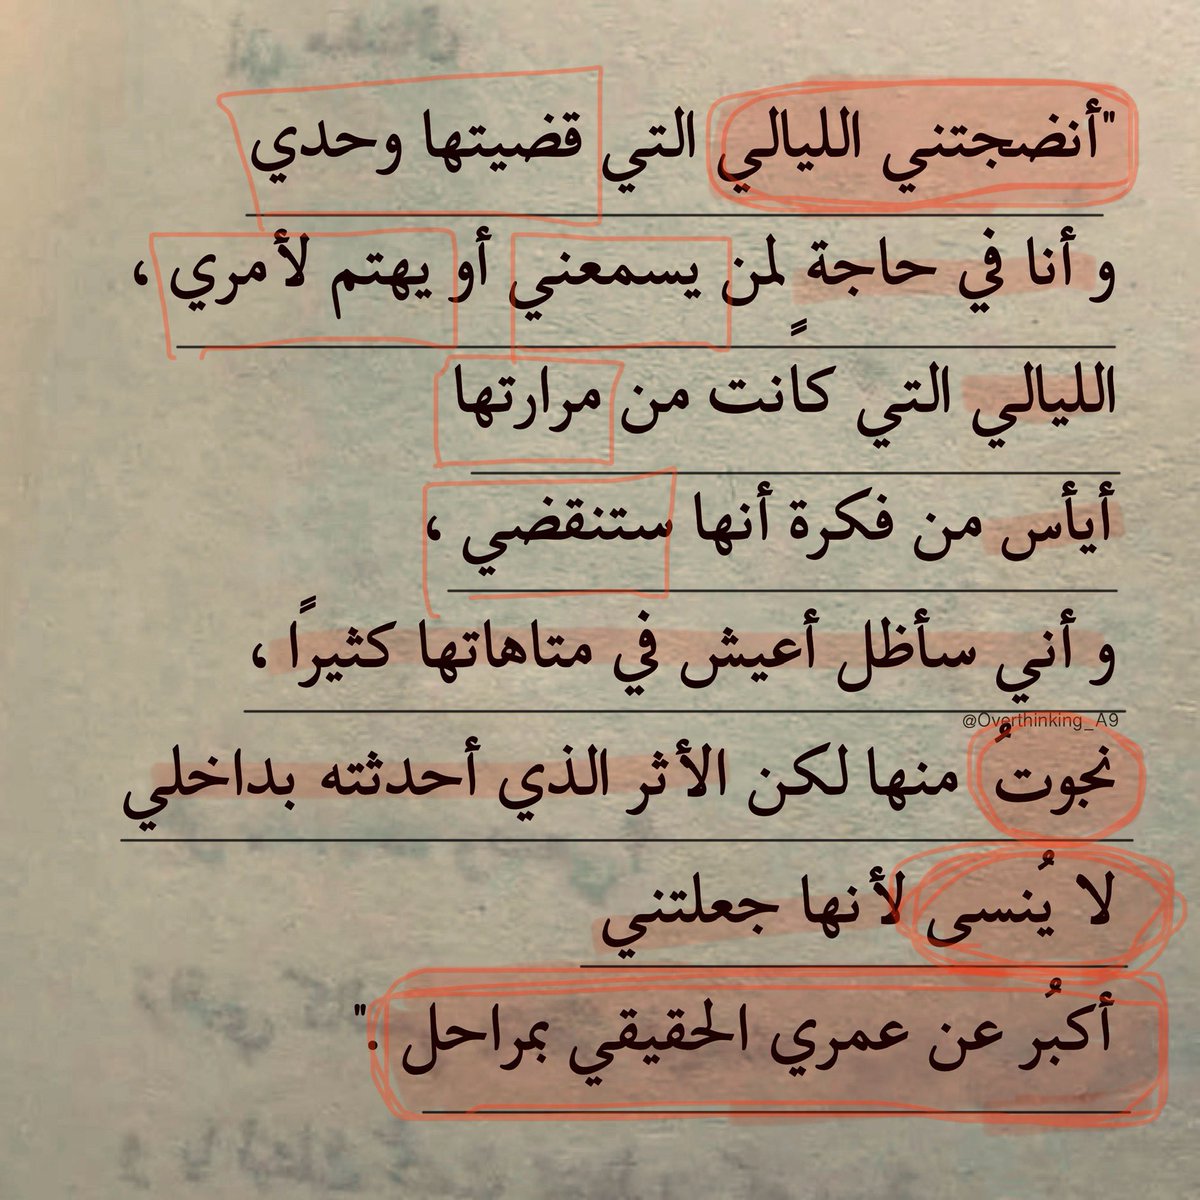 "أنضجتني الليالي التي قضيتها وحدي
و أنا في حاجةٍ لمن يسمعني أو يهتم لأمري ،
الليالي التي كانت من مرارتها
أيأس من فكرة أنها ستنقضي ،
و أني سأظل أعيش في متاهاتها كثيرًا ،
@Overthinking_A9
نجوتُ منها لكن الأثر الذي أحدثته بداخلي
لا يُنسى لأنها جعلتني
أكبُر عن عمري الحقيقي بمراحل ."